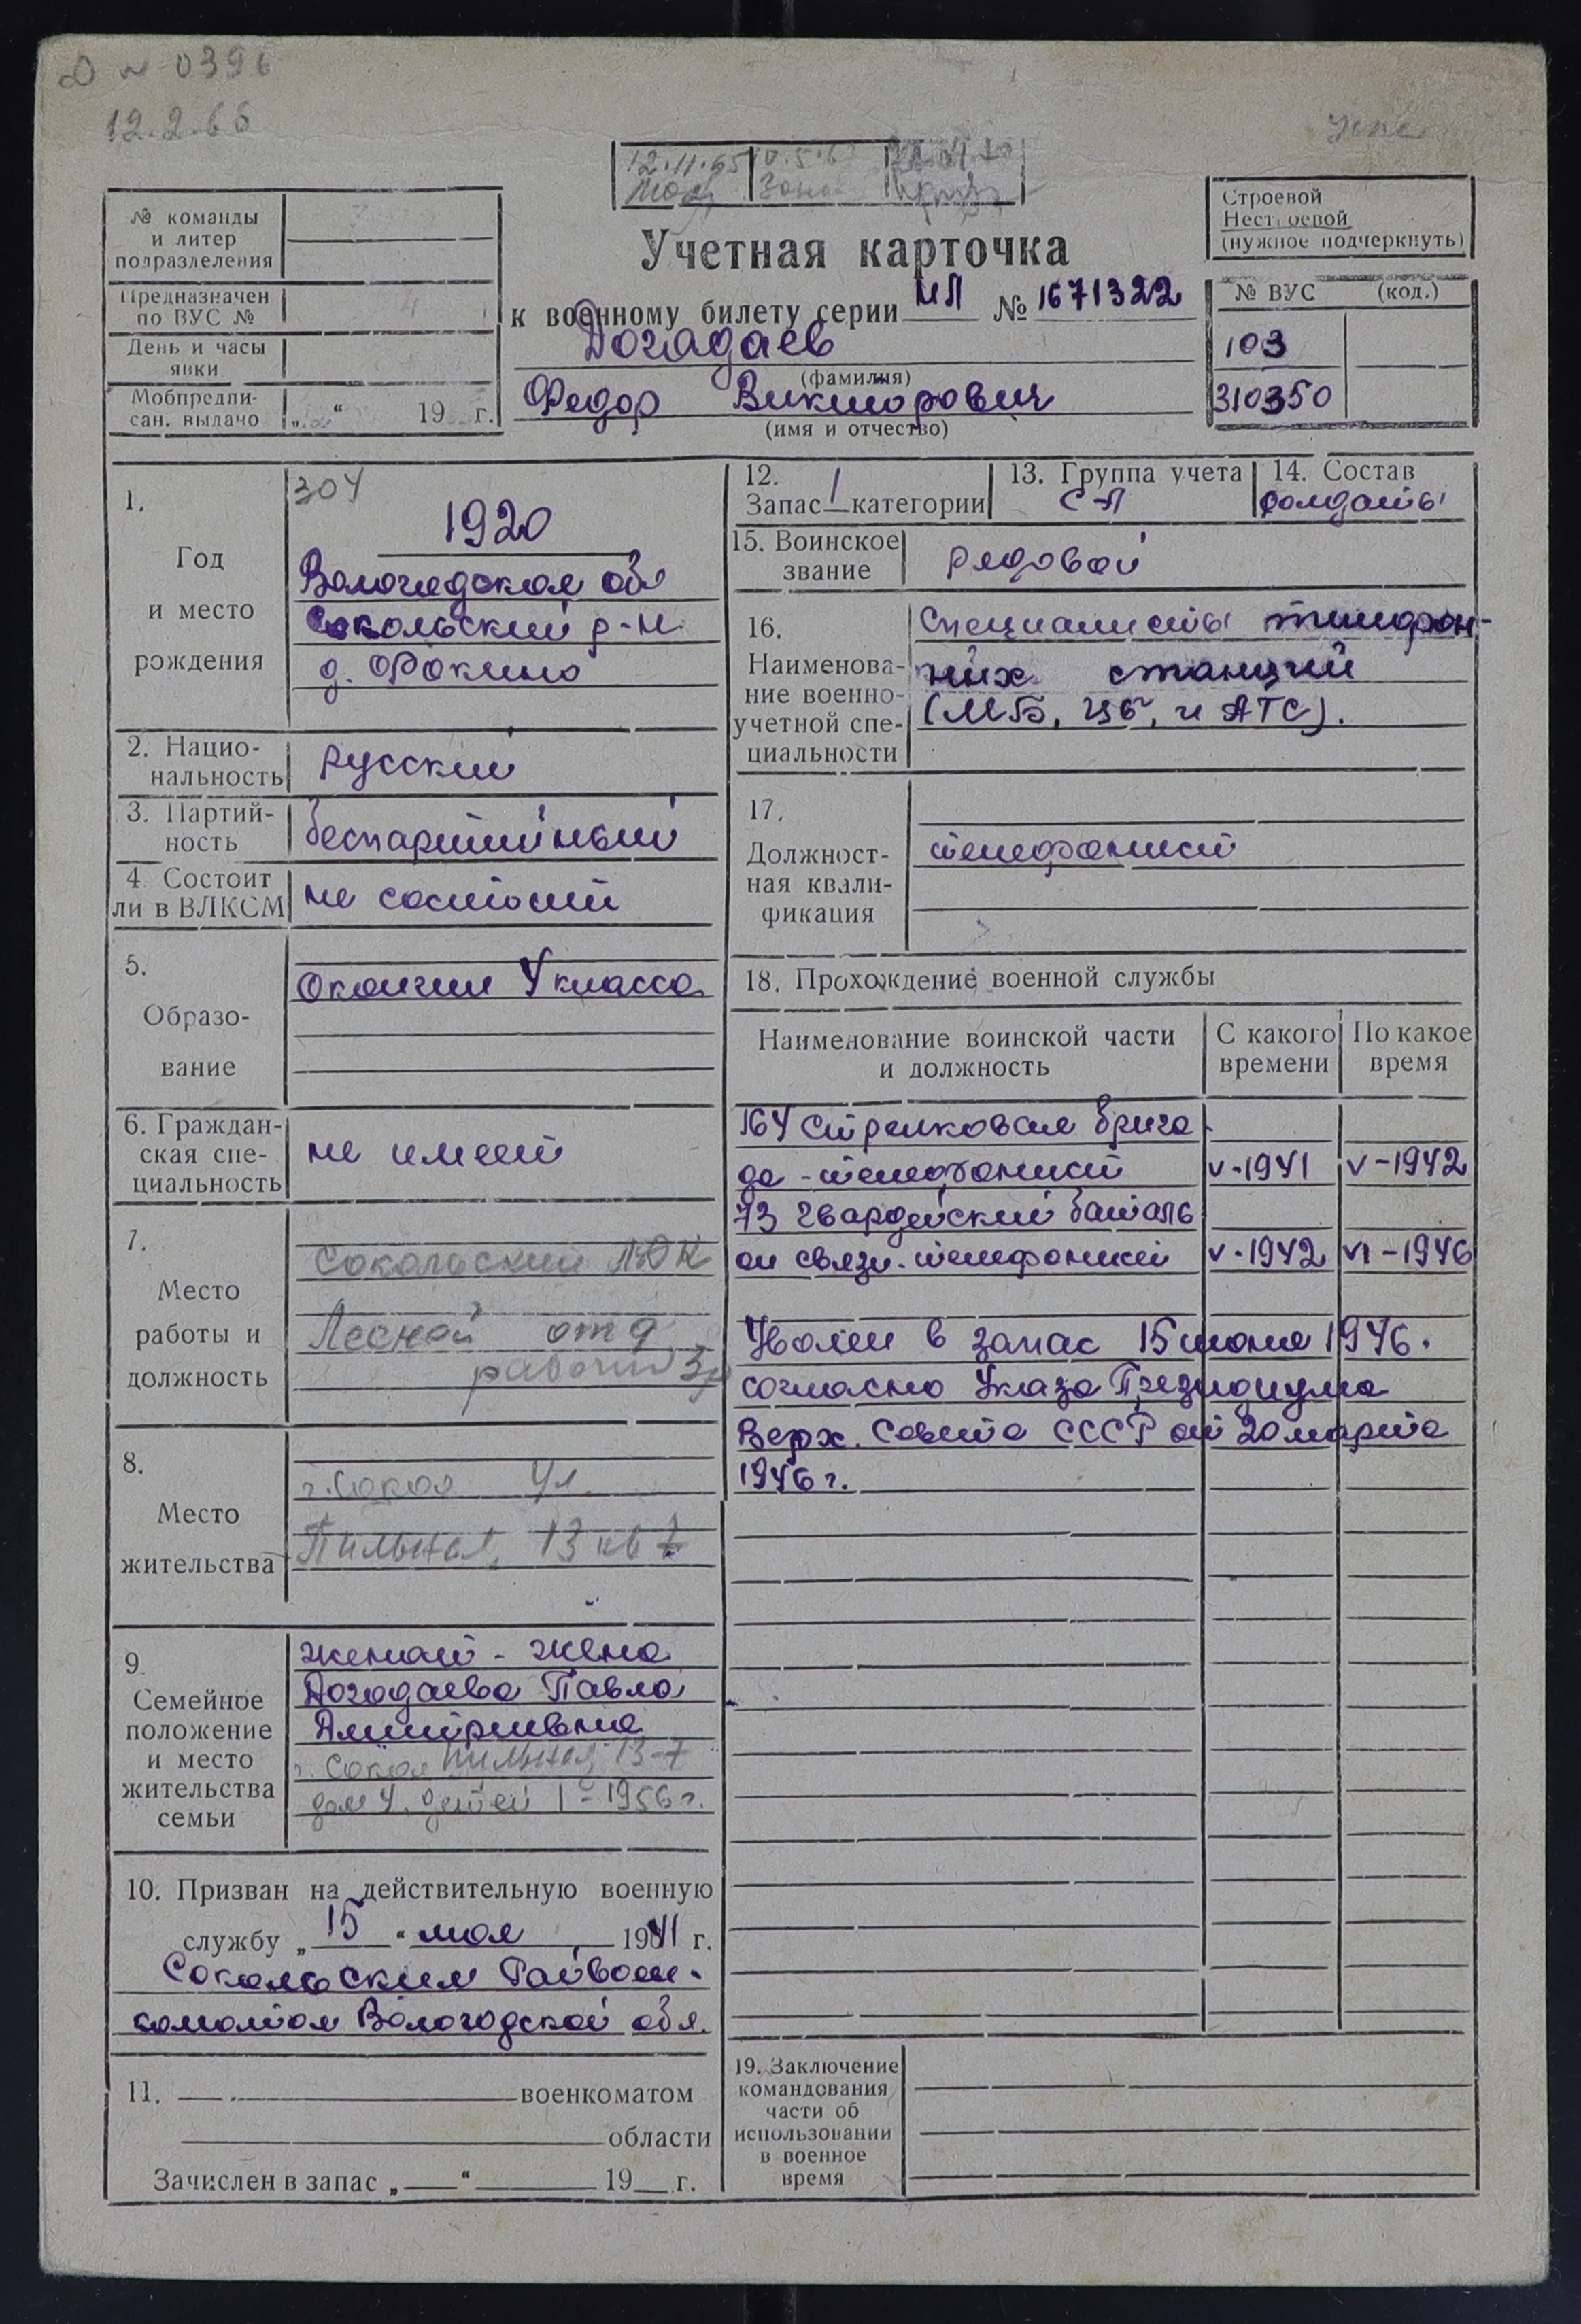 № 0396
12.2.66
12.11.65
Строевой
Нестроевой
(нужное подчеркнуть)
№ команды
и литер
подразделения
Предназначен
по ВУС №
День и часы
явки
Мобпредпи-
сан. выдано „ “ 19 г.
Учетная карточка
к военному билету серии НЛ № 1671322
Догадаев
(фамилия)
Федор Викторович
(имя и отчество)
№ ВУС (код.)
103
310350
1.
Год
и место
рождения
304
1920
Вологодская обл
Сокольский р-н
д. Фокино
2. Нацио-
нальность
русский
3. Партий-
ность
беспартийный
4. Состоит
ли в ВЛКСМ
не состоит
5.
Образо-
вание
Окончил 4 класса
6. Граждан-
ская спе-
циальность
не имеет
7.
Место
работы и
должность
Сокольский ЛДК
Лесной отд
рабочий
8.
Место
жительства
г. Сокол ул.
Пильная, 13 кв 7
9.
Семейное
положение
и место
жительства
семьи
женат - жена
Догадаева Павла
Дмитриевна
г. Сокол Пильная, 13-7
дом 4. детей 1 - 1956 г.
10. Призван на действительную военную
службу „15“ мая 1941 г.
Сокольским Райвоен-
коматом Вологодской обл.
11. военкоматом
области
Зачислен в запас „ “ 19 г.
12.
Запас 1 категории
13. Группа учета
СА
14. Состав
солдаты
15. Воинское
звание
рядовой
16.
Наименова-
ние военно-
учетной спе-
циальности
Специалисты телефон-
ных станций
(МБ, ЦБ, и АТС).
17.
Должност-
ная квали-
фикация
телефонист
18. Прохождение военной службы
Наименование воинской части
и должность
С какого
времени
По какое
время
164 Стрелковая брига
да - телефонист V-1941 V-1942
73 гвардейский баталь
он связи - телефонист V-1942 VI-1946
Уволен в запас 15 июня 1946.
согласно Указа Президиума
Верх. Совета СССР от 20 марта
1946 г.
19. Заключение
командования
части об
использовании
в военное
время